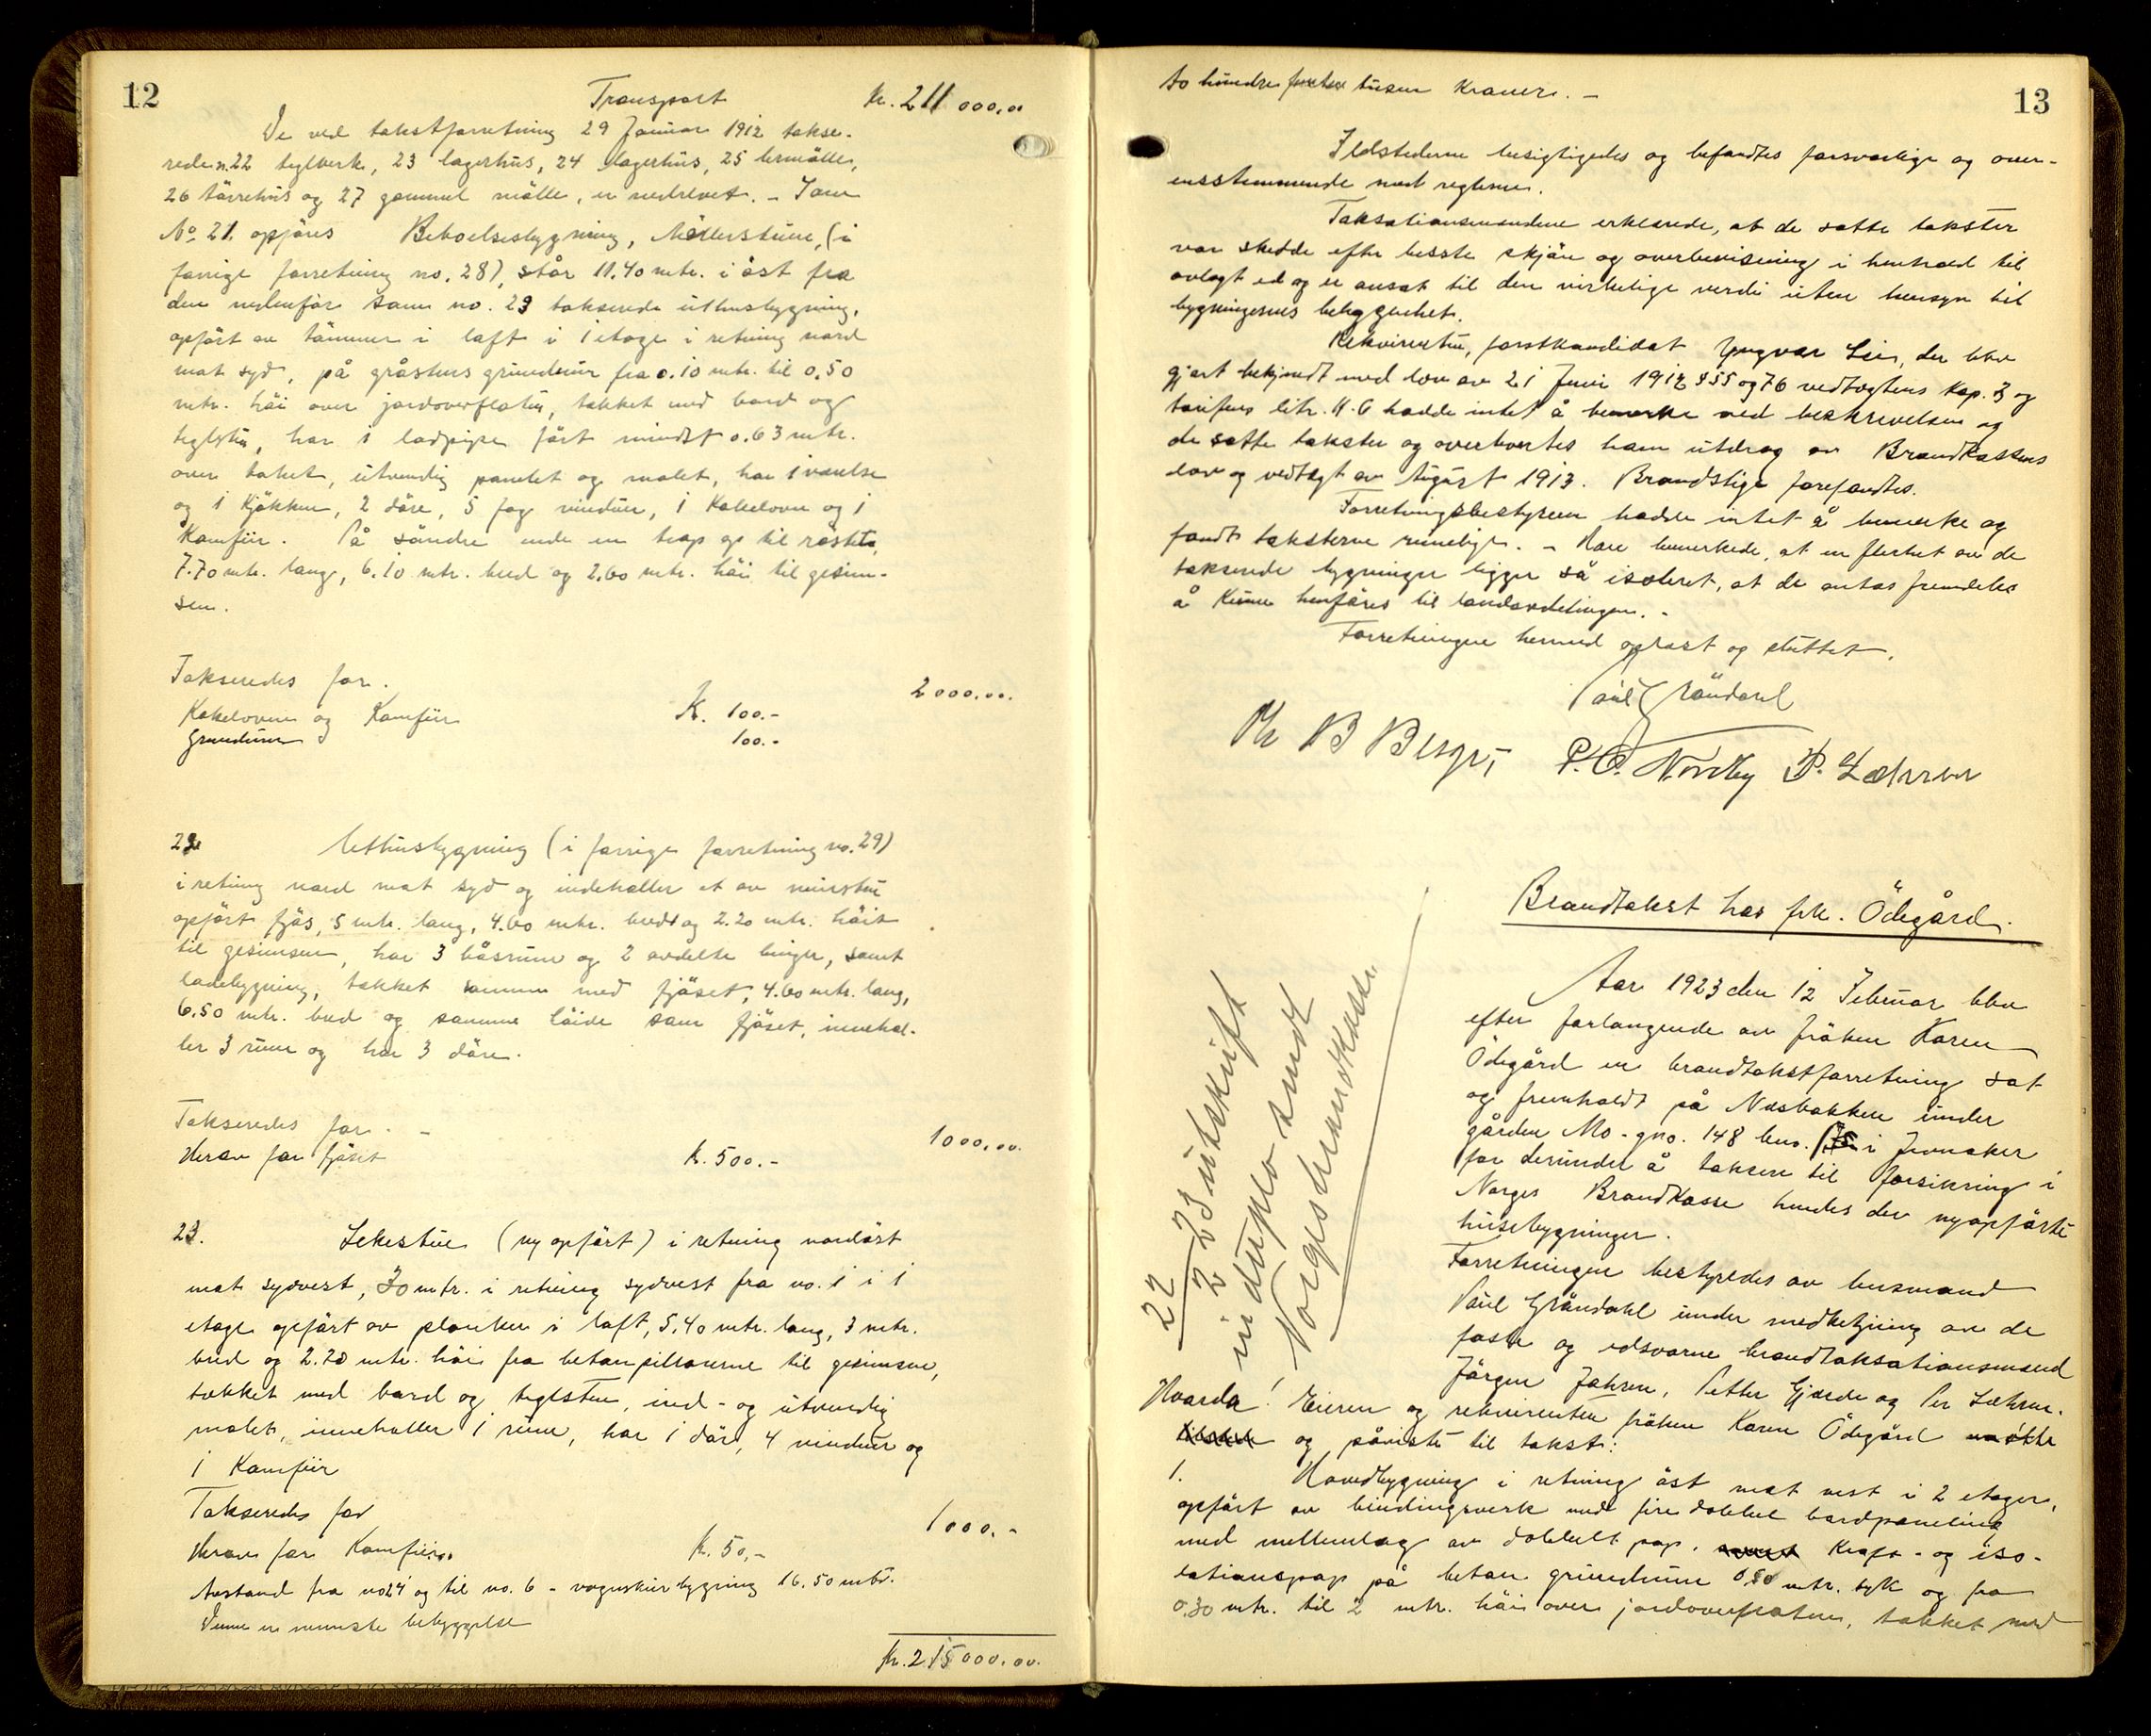 12
Transport Kr. 211 000,00
De ved takstforretning 29 Januar 1912 takse-
rede n. 22 teglverk, 23 lagerhus, 24 lagerhus, 25 lermölle,
26 törrehus og 27 gammel mölle, er nedrevet. - Som
No. 21. opföres Beboelsesbygning, Möllerstuen, (i
forrige forretning no. 28), står 11.40 mtr. i öst fra
den nedenfor som no. 29 takserede uthusbygning,
opfört av tömmer i laft i 1 etage i retning nord
mot syd, på gråstens grundmur fra 0.10 mtr. til 0.50
mtr. höi over jordoverflaten, tækket med bord og
teglsten, har 1 ladpipe fört mindst 0.63 mtr.
over taket, utvendig panelet og malet, har 1 værelse
og 1 Kjökken, 2 döre, 5 fag vinduer, 1 Kakelovn og 1
Komfür. På söndre ende en trap op til röstet,
7.70 mtr. lang, 6.10 mtr. bred og 2.60 mtr. höi til gesim-
sen.
Takseredes for. 2000.00.
Kakelovn og Komfür K. 100.-
Grundmur 100.-
22 Uthusbygning (i forrige forretning no. 29)
i retning nord mot syd og indeholder et av mursten
opfört fjös, 5 mtr. lang, 4.60 mtr. bredt og 2.20 mtr. höit
til gesimsen, har 3 båsrum og 2 avdelte binger, samt
ladebygning, tækket sammen med fjöset, 4.60 mtr. lang,
6.50 mtr. bred og samme höide som fjöset, innehol-
der 3 rum og har 3 döre.
Takseredes for. - 1000,00.
Herav for fjöset K. 500.-
23. Lekestue (ny opfört) i retning nordöst
mot sydvest, 70 mtr. i retning sydvest fra no. 1 i 1
etage opfört av planker i laft, 5,40 mtr. lang, 3 mtr.
bred og 2.20 mtr. höi fra betonpillarerne til gesimsen,
tækket med bord og teglsten, ind- og utvendig
malet, inneholder 1 rum, har 1 dör, 4 vinduer og
1 Komfür
Takseredes for 1000.-
Herav for Komfüren K. 50,-
Avstand fra no 24 og til no. 6 - vognskurbygning 16.50 mtr.
Denne er nærmeste bebyggelse
Kr. 215000.00.
13
to hundre femten tusen kroner. -
Ildstederne besigtigedes og befandtes forsvarlige og over-
ensstemmende med reglerne.
Taksationsmændene erklærede, at de satte takster
var skedde efter besste skjön og overbevisning i henhold til
avlagt ed og er ansat til den virkelige verdi uten hensyn til
bygningernes beliggenhet.
Rekvirenten, forstkandidat Yngvar Lie, der blev
gjort bekjendt med lov av 21 Juni 1912 § 55 og 76 vedtægtens Kap. 3 og
tarifens litr. H. G hadde intet å bemerke ved beskrivelsen og
de satte takster og overlevertes ham utdrag av Brandkassens
lov og vedtægt av August 1913. Brandstige forefandtes.
Forretningsbestyreren hadde intet å bemerke og
fandt taksterne rimelige. - Han bemerkede, at en flerhet av de
takserede bygninger ligger så isoleret, at de antas fremdeles
å kunne henföres til landavdelingen. -
Forretningen hermed oplæst og sluttet.
Paul Gröndahl
Kr B Berger P. O. Nordby P. Læhren
Brandtakst hos frk. Ödegård.
22/2 23 utskrift
in duplo sendt
Norges brandkasse.
Aar 1923 den 12 Februar blev
efter forlangende av fröken Karen
Ödegård en brandtakstforretning sat
og fremholdt på Næsbakken under
gården Mo - gno. 148 bno. 75 i Jevnaker
for derunder å taksere til forsikring i
Norges Brandkasse hendes der nyopförte
husebygninger.
Forretningen bestyredes av lensmand
Paul Gröndahl under medbetjening av de
faste og edsvorne brandtaksationsmænd
Jörgen Johren, Petter Gjærde og Per Læhren.
Hvorda! Eieren og rekvirenten fröken Karen Ödegård mötte
og påviste til takst:
1. Hovedbygning i retning öst mot vest i 2 etager,
opfört av bindingsverk med fire dobbel bordpaneling
med mellemlag av dobbelt pap, Kraft- og iso-
lationspap på beton grundmur 0.50 mtr. tyk og fra
0.30 mtr. til 2 mtr. höi over jordoverflaten, tækket med